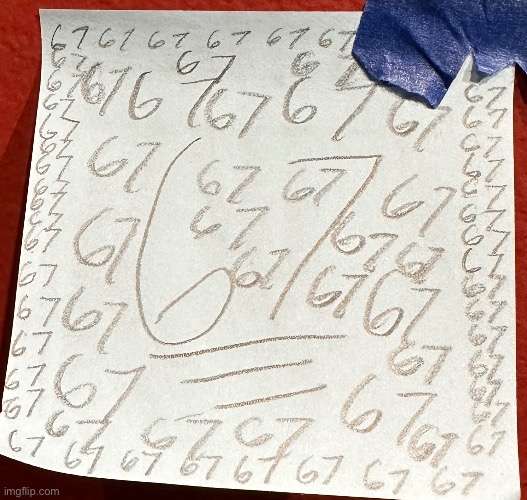 67 67 67 67 67 67
67 67 67
67 67 67 67 67 67
67 67 67
67 67
67 67 67
67 67 67 67
67 67 67 67
67 67 67
67 67 67 67 67
67 67 67 67
67 67 67 67 67
67 67
67 67 67
67 67 67
67 67 67
67 67 67 67 67
67 67 67 67 67 67 67 67
imgflip.com